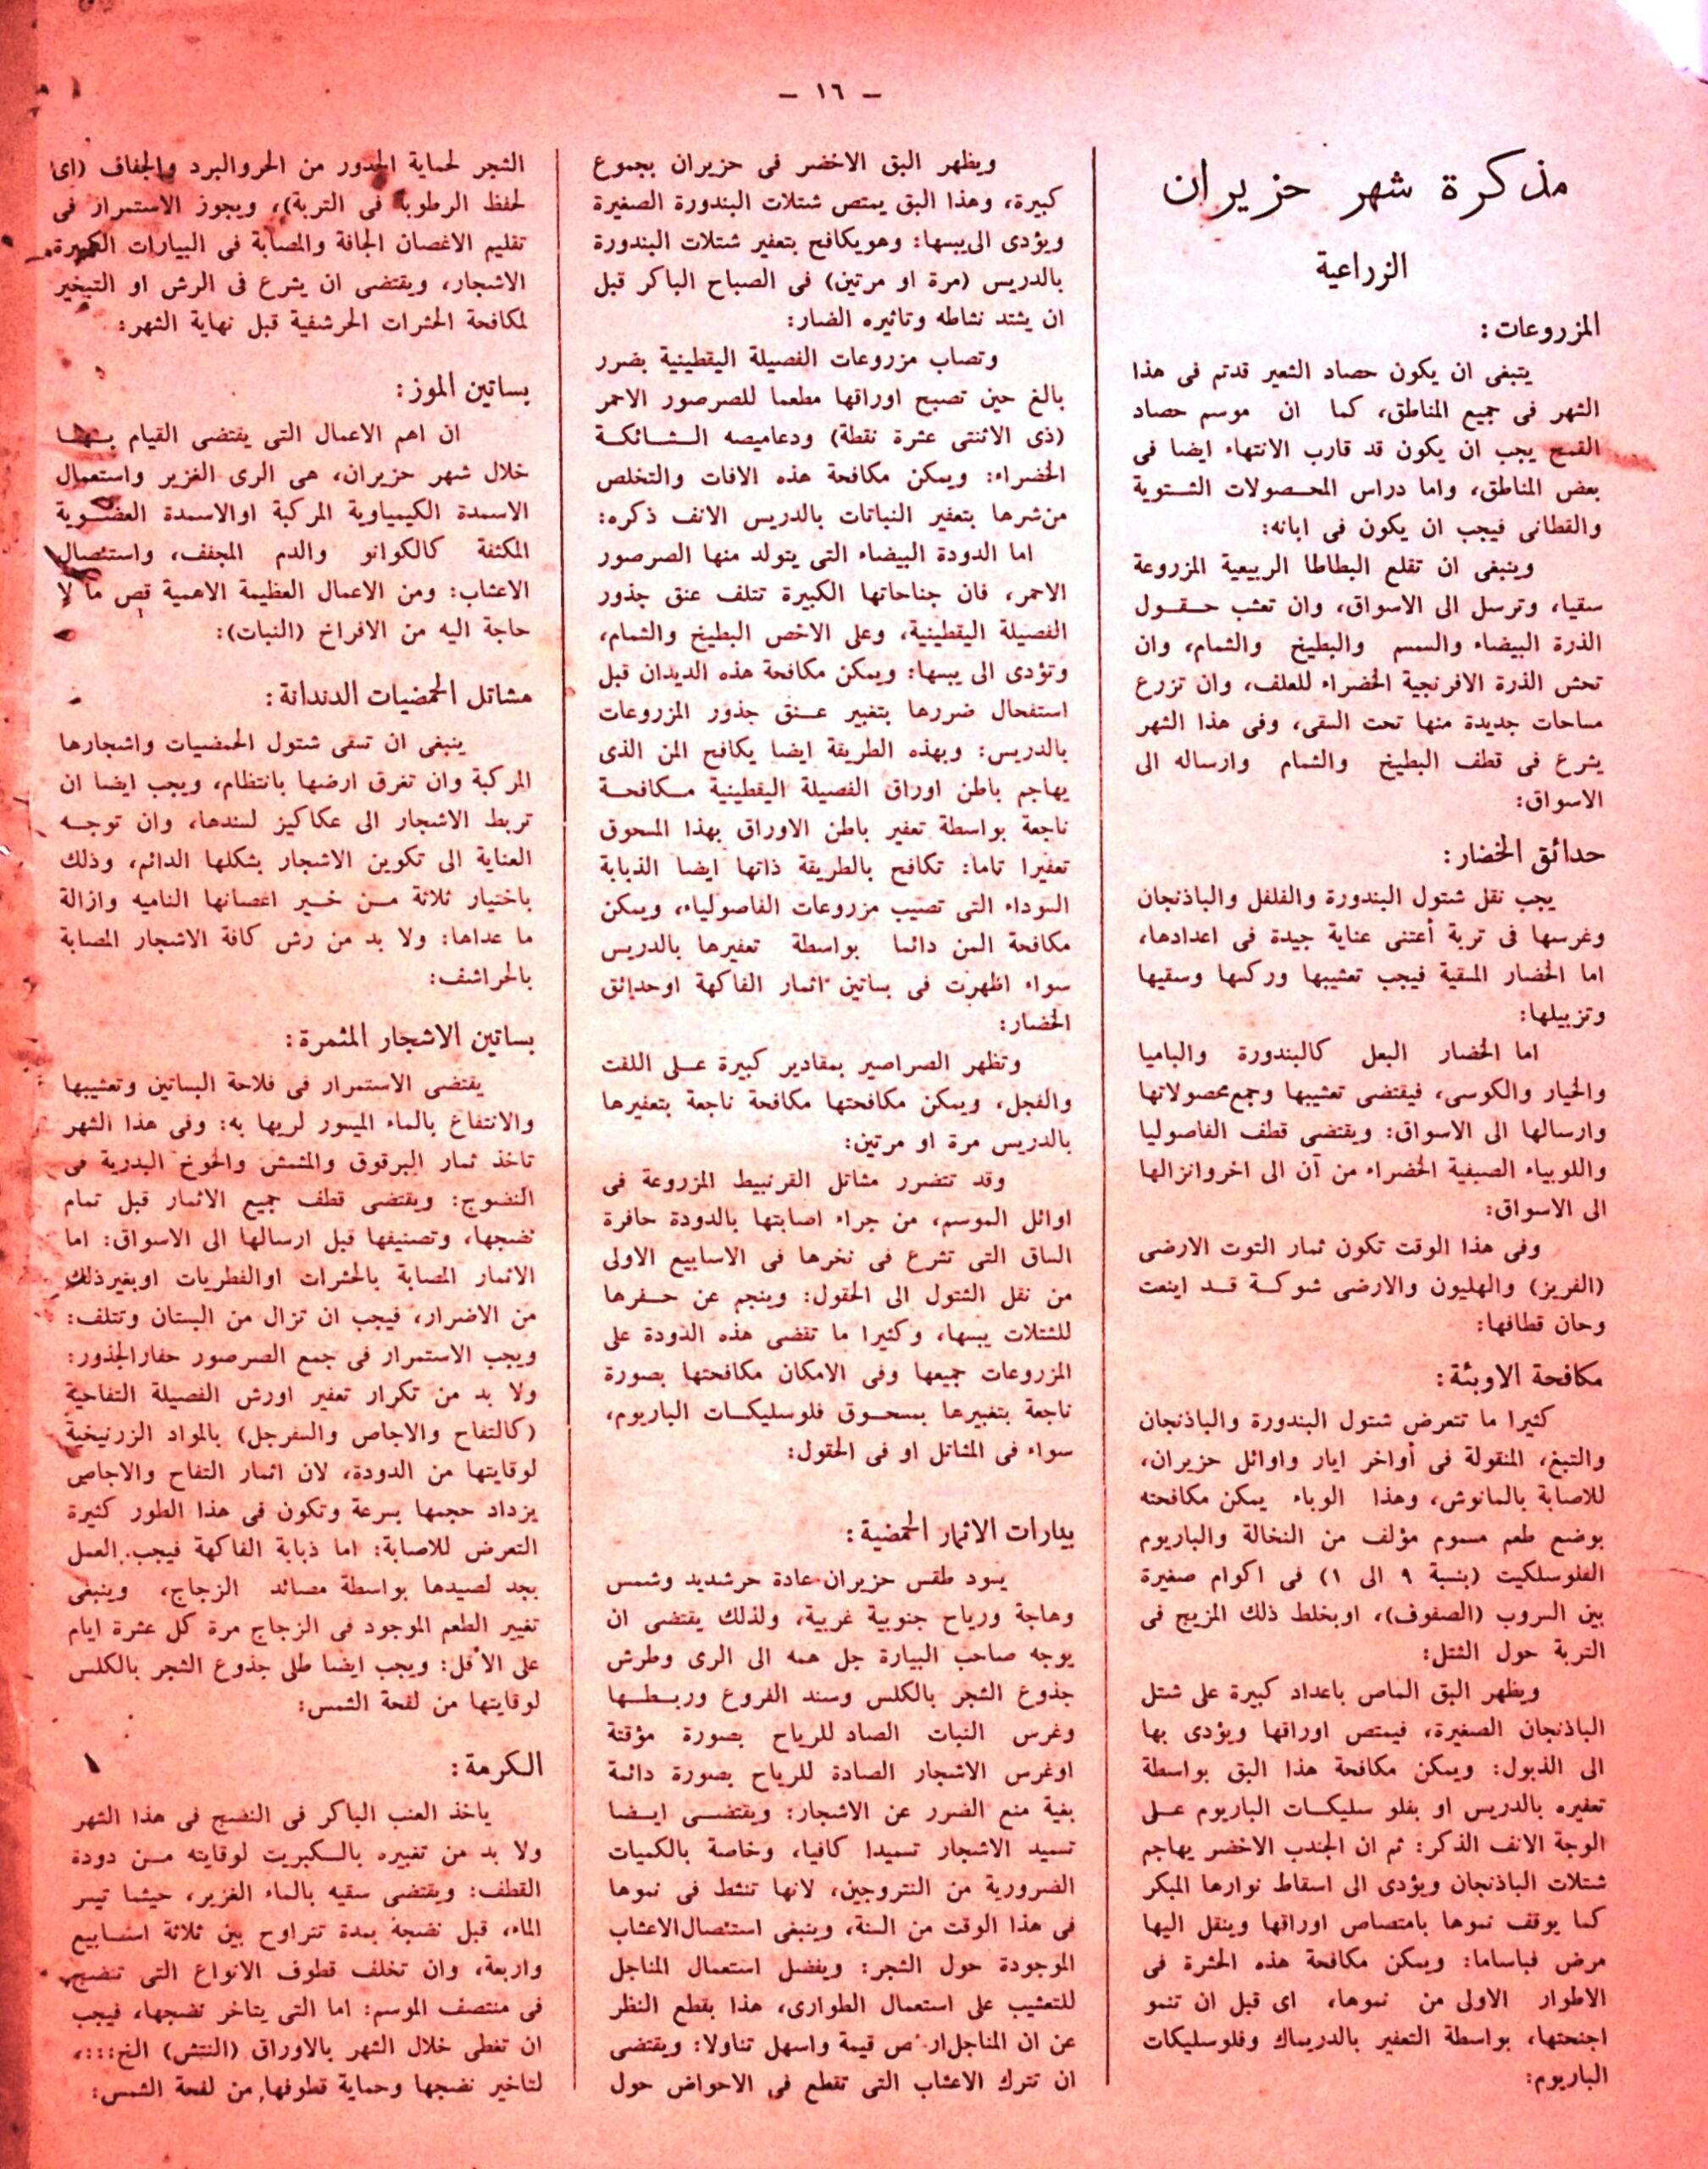 — ١٦ —
مذكرة شهر حزيران
الزراعية
المزروعات:
يتبغى ان يكون حصاد الشعير قدتم فى هذا
الشهر فى جميع المناطق، كما ان موسم حصاد
القمح يجب ان يكون قد قارب الانتهاء ايضا فى
بعض المناطق، واما دراس المحصولات الشتوية
والقطانى فيجب ان يكون فى ابانه:
وينبغى ان تقلع البطاطا الربيعية المزروعة
سقيا، وترسل الى الاسواق، وان تعشب حقول
الذرة البيضاء والسمسم والبطيخ والشمام، وان
تحش الذرة الافرنجية الخضراء للعلف، وان تزرع
مساحات جديدة منها تحت السقى، وفى هذا الشهر
يشرع فى قطف البطيخ والشمام وارساله الى
الاسواق:
حدائق الخضار:
يجب نقل شتول البندورة والفلفل والباذنجان
وغرسها فى تربة أعتنى عناية جيدة فى اعدادها،
اما الخضار المسقية فيجب تعشيبها وركسها وسقيها
وتزبيلها:
اما الخضار البعل كالبندورة والباميا
والخيار والكوسى، فيقتضى تعشيبها وجمع محصولاتها
وارسالها الى الاسواق: ويقتضى قطف الفاصوليا
واللوبياء الصيفية الخضراء من آن الى اخروانزالها
الى الاسواق:
وفى هذا الوقت تكون ثمار التوت الارضى
(الفريز) والهليون والارضى شوكة قد اينعت
وحان قطافها:
مكافحة الاوبئة:
كثيرا ما تتعرض شتول البندورة والباذنجان
والتبغ، المنقولة فى أواخر ايار واوائل حزيران،
للاصابة بالمانوش، وهذا الوباء يمكن مكافحته
بوضع طعم مسموم مؤلف من النخالة والباريوم
الفلوسلكيت (بنسبة ٩ الى ١) فى اكوام صغيرة
بين السروب (الصفوف)، اوبخلط ذلك المزيج فى
التربة حول الشتل:
ويظهر البق الماص باعداد كبيرة على شتل
الباذنجان الصغيرة، فيمتص اوراقها ويؤدى بها
الى الذبول: ويمكن مكافحة هذا البق بواسطة
تعفيره بالدريس او بفلو سليكات الباريوم على
الوجة الانف الذكر: ثم ان الجندب الاخضر يهاجم
شتلات الباذنجان ويؤدى الى اسقاط نوارها المبكر
كما يوقف نموها بامتصاص اوراقها وينقل اليها
مرض فياساما: ويمكن مكافحة هذه الحشرة فى
الاطوار الاولى من نموها، اى قبل ان تنمو
اجنحتها، بواسطة التعفير بالدريماك وفلوسليكات
الباريوم:
ويظهر البق الاخضر فى حزيران بجموع
كبيرة، وهذا البق يمتص شتلات البندورة الصغيرة
ويؤدى الى يبسها: وهويكافح بتعفير شتلات البندورة
بالدريس (مرة او مرتين) فى الصباح الباكر قبل
ان يشتد نشاطه وتاثيره الضار:
وتصاب مزروعات الفصيلة اليقطينية بضرر
بالغ حين تصبح اوراقها مطعما للصرصور الاحمر
(ذى الاثنتى عشرة نقطة) ودعاميصه الشائكة
الخضراء: ويمكن مكافحة هذه الافات والتخلص
من شرها بتعفير النباتات بالدريس الانف ذكره:
اما الدودة البيضاء التى يتولد منها الصرصور
الاحمر، فان جناحاتها الكبيرة تتلف عنق جذور
الفصيلة اليقطينية، وعلى الاخص البطيخ والشمام،
وتؤدى الى يبسها: ويمكن مكافحة هذه الديدان قبل
استفحال ضررها بتغبير عنق جذور المزروعات
بالدريس: وبهذه الطريقة ايضا يكافح المن الذى
يهاجم باطن اوراق الفصيلة اليقطينية مكافحة
ناجعة بواسطة تعفير باطن الاوراق بهذا المسحوق
تعفيرا تاما: تكافح بالطريقة ذاتها ايضا الذبابة
السوداء التى تصيب مزروعات الفاصولياء، ويمكن
مكافحة المن دائما بواسطة تعفيرها بالدريس
سواء اظهرت فى بساتين اثمار الفاكهة اوحدائق
الخضار:
وتظهر الصراصير بمقادير كبيرة على اللفت
والفجل، ويمكن مكافحتها مكافحة ناجعة بتعفيرها
بالدريس مرة او مرتين:
وقد تتضرر مشاتل القرنبيط المزروعة فى
اوائل الموسم، من جراء اصابتها بالدودة حافرة
الساق التى تشرع فى نخرها فى الاسابيع الاولى
من نقل الشتول الى الحقول: وينجم عن حفرها
للشتلات يبسها، وكثيرا ما تقضى هذه الدودة على
المزروعات جميعها وفى الامكان مكافحتها بصورة
ناجعة بتغبيرها بمسحوق فلوسليكات الباريوم،
سواء فى المشاتل او فى الحقول:
بيارات الاثمار الحمضية:
يسود طقس حزيران عادة حرشديد وشمس
وهاجة ورياح جنوبية غربية، ولذلك يقتضى ان
يوجه صاحب البيارة جل همه الى الرى وطرش
جذوع الشجر بالكلس وسند الفروع وربطها
وغرس النبات الصاد للرياح بصورة مؤقتة
اوغرس الاشجار الصادة للرياح بصورة دائمة
بغية منع الضرر عن الاشجار: ويقتضى ايضا
تسميد الاشجار تسميدا كافيا، وخاصة بالكميات
الضرورية من النتروجين، لانها تنشط فى نموها
فى هذا الوقت من السنة، وينبغى استئصال الاعشاب
الموجودة حول الشجر: ويفضل استعمال المناجل
للتعشيب على استعمال الطوارى، هذا بقطع النظر
عن ان المناجل ص قيمة واسهل تناولا: ويقتضى
ان تترك الاعشاب التى تقطع فى الاحواض حول
الشجر لحماية الجدور من الحروالبرد والجفاف (اى
لحفظ الرطوبة فى التربة)، ويجوز الاستمرار فى
تقليم الاغصان الجافة والمصابة فى البيارات الكبيرة
الاشجار، ويقتضى ان يشرع فى الرش او التبخير
لمكافحة الحشرات الحرشفية قبل نهاية الشهر:
بساتين الموز:
ان اهم الاعمال التى يقتضى القيام بها
خلال شهر حزيران، هى الرى الغزير واستعمال
الاسمدة الكيمياوية المركبة اوالاسمدة العضوية
المكثفة كالكوانو والدم المجفف، واستئصال
الاعشاب: ومن الاعمال العظيمة الاهمية قص ما لا
حاجة اليه من الافراخ (النبات):
مشاتل الحمضيات الدندانة:
ينبغى ان تسقى شتول الحمضيات واشجارها
المركبة وان تغرق ارضها بانتظام، ويجب ايضا ان
تربط الاشجار الى عكاكيز لسندها، وان توجه
العناية الى تكوين الاشجار بشكلها الدائم، وذلك
باختيار ثلاثة من خير اغصانها الناميه وازالة
ما عداها: ولا بد من رش كافة الاشجار المصابة
بالحراشف:
بساتين الاشجار المثمرة:
يقتضى الاستمرار فى فلاحة البساتين وتعشيبها
والانتفاع بالماء الميسور لريها به: وفى هذا الشهر
تاخذ ثمار البرقوق والمشمش والخوخ البدرية فى
النضوج: ويقتضى قطف جميع الاثمار قبل تمام
نضجها، وتصنيفها قبل ارسالها الى الاسواق: اما
الاثمار المصابة بالحشرات اوالفطريات اوبغيرذلك
من الاضرار، فيجب ان تزال من البستان وتتلف:
ويجب الاستمرار فى جمع الصرصور حفارالجذور:
ولا بد من تكرار تعفير اورش الفصيلة التفاحية
(كالتفاح والاجاص والسفرجل) بالمواد الزرنيخية
لوقايتها من الدودة، لان اثمار التفاح والاجاص
يزداد حجمها بسرعة وتكون فى هذا الطور كثيرة
التعرض للاصابة: اما ذبابة الفاكهة فيجب العمل
بجد لصيدها بواسطة مصائد الزجاج، وينبغى
تغيير الطعم الموجود فى الزجاج مرة كل عشرة ايام
على الأقل: ويجب ايضا طلى جذوع الشجر بالكلس
لوقايتها من لفحة الشمس:
الكرمة:
ياخذ العنب الباكر فى النضج فى هذا الشهر
ولا بد من تغبيره بالكبريت لوقايته من دودة
القطف: ويقتضى سقيه بالماء الغزير، حيثما تيسر
الماء، قبل نضجه بمدة تتراوح بين ثلاثة اسابيع
واربعة، وان تخلف قطوف الانواع التى تنضج
فى منتصف الموسم: اما التى يتاخر نضجها، فيجب
ان تغطى خلال الشهر بالاوراق (النتش) الخ:::،
لتاخير نضجها وحماية قطوفها من لفحة الشمس: